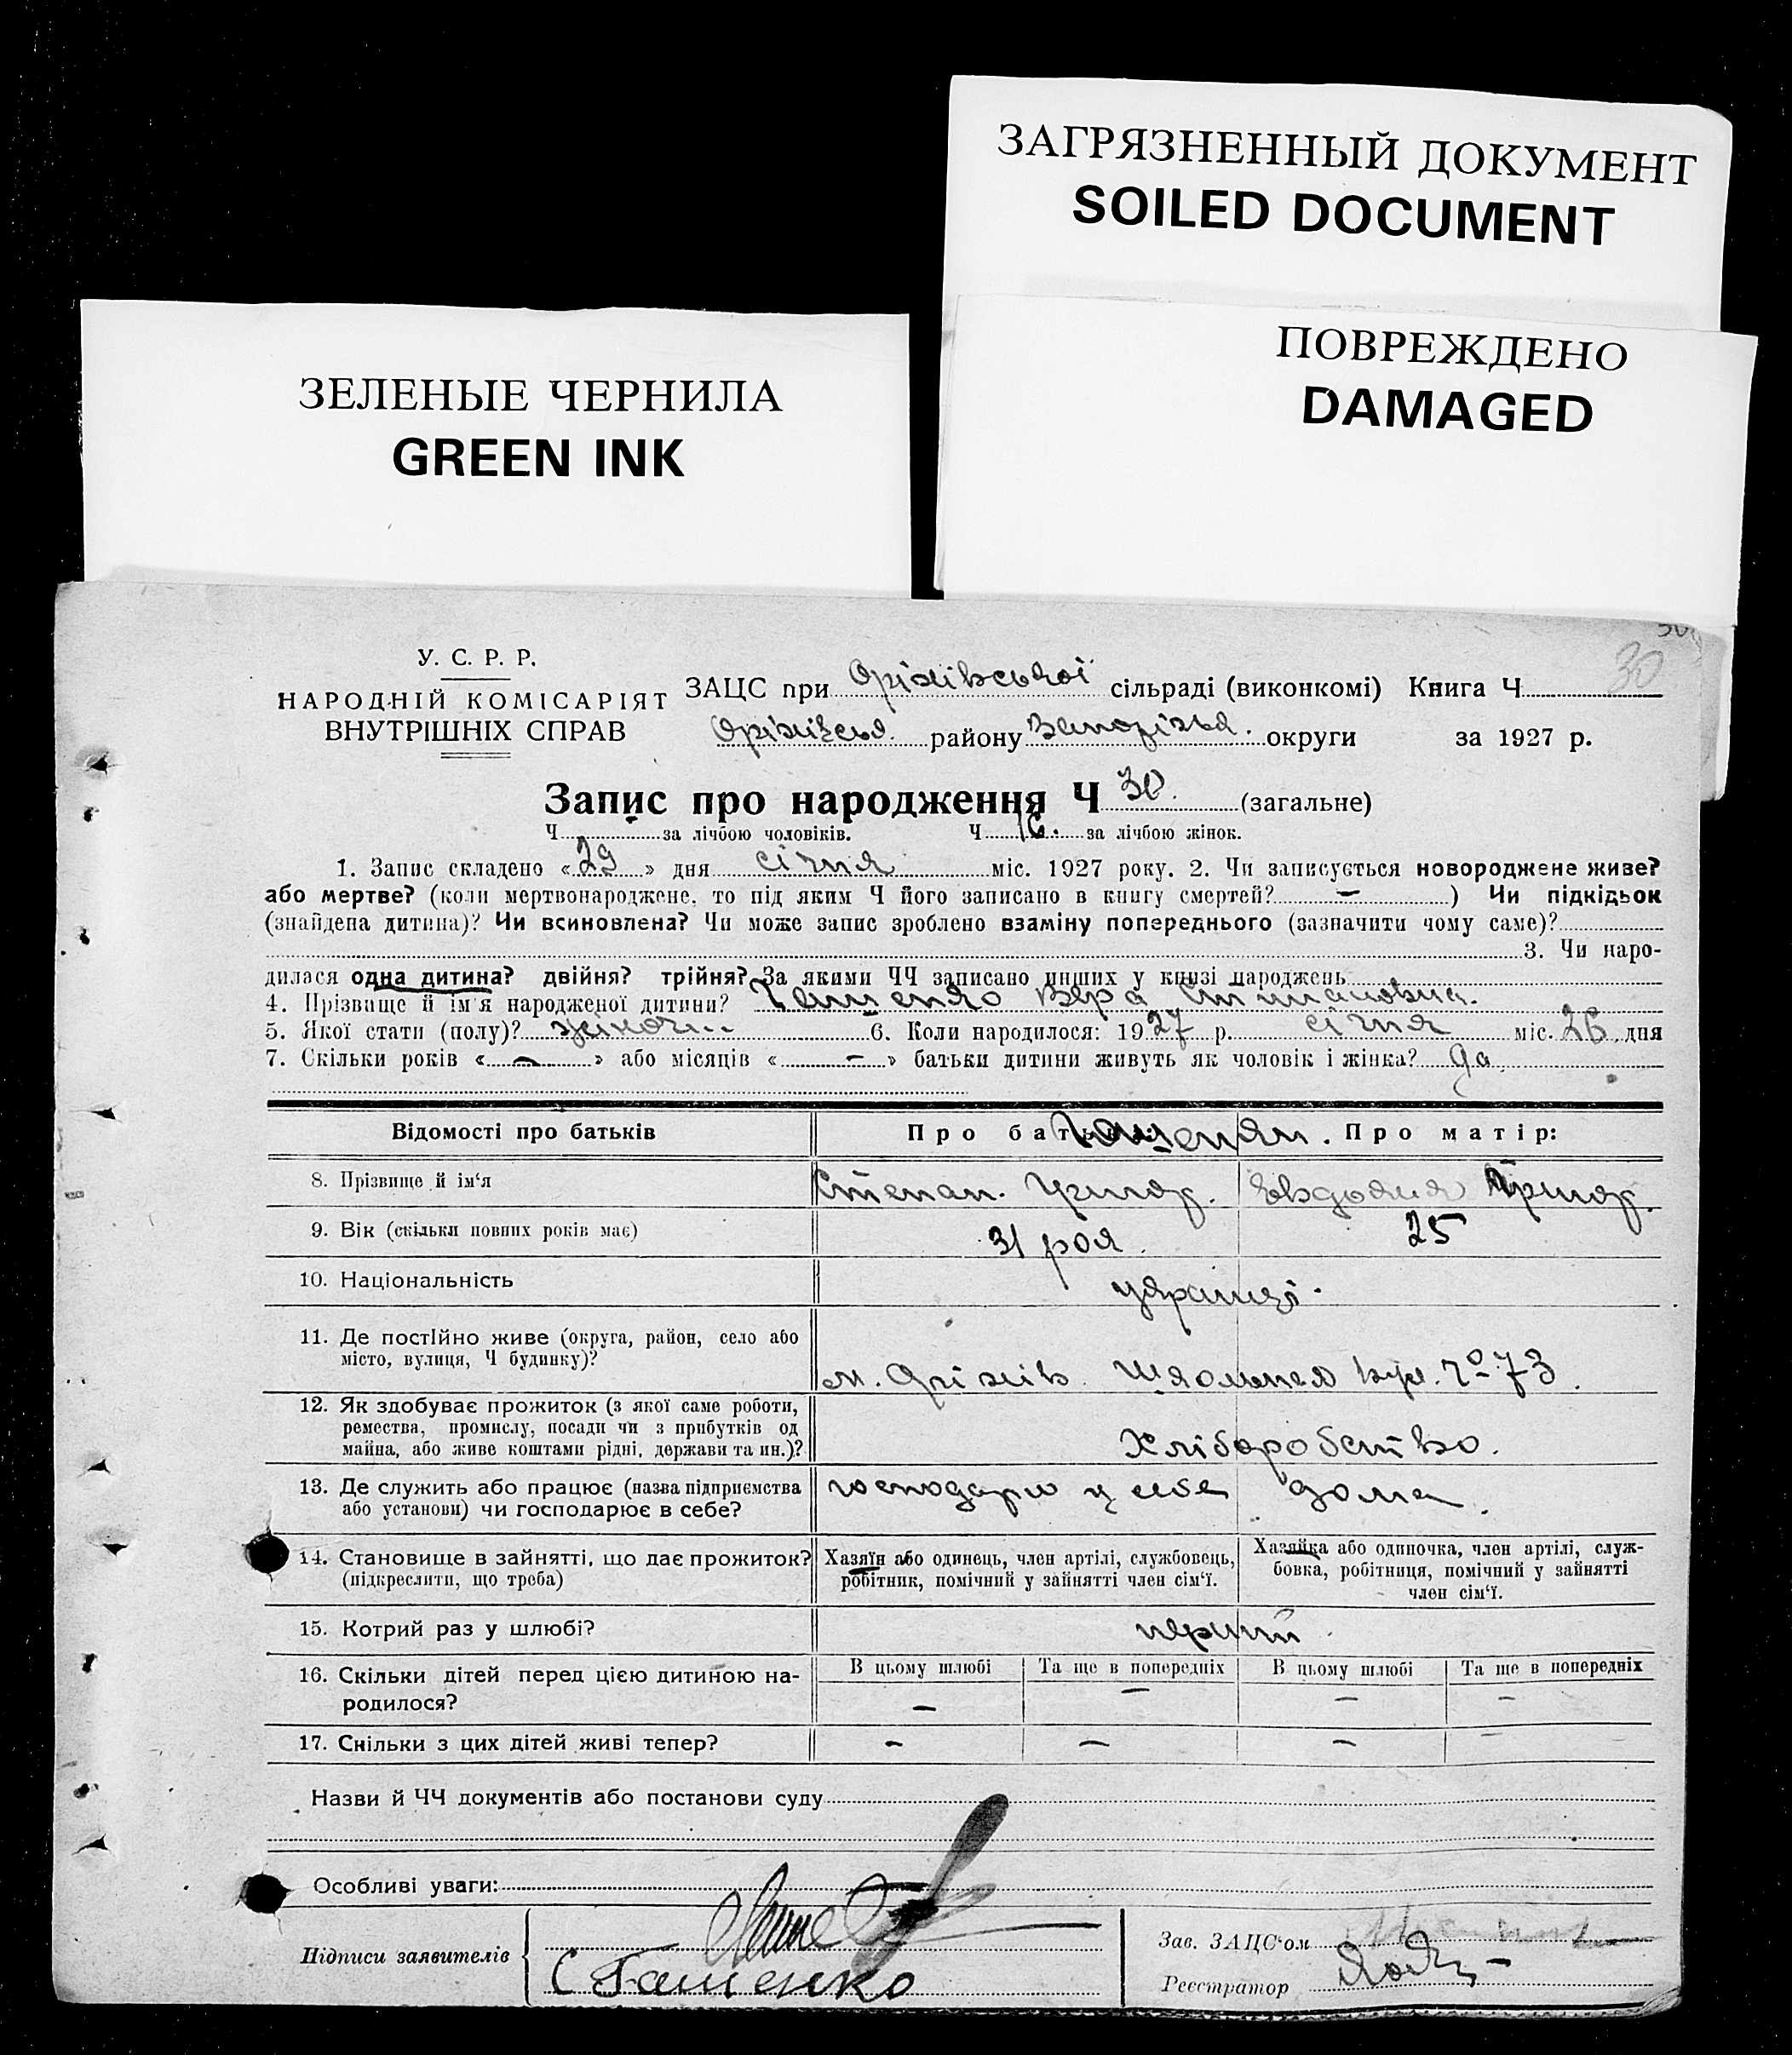 ЗАГРЯЗНЕННЫЙ ДОКУМЕНТ
SOILED DOCUMENT
ПОВРЕЖДЕНО
DAMAGED
ЗЕЛЕНЫЕ ЧЕРНИЛА
GREEN INK
30
У. С. Р. Р.
НАРОДНІЙ КОМІСАРІЯТ
ВНУТРІШНІХ СПРАВ
ЗАЦС при Оріхівської сільраді (виконкомі) Книга Ч 30
Оріхівськ. району Запоріськ. округи за 1927 р.
Запис про народження Ч 30. (загальне)
Ч - за лічбою чоловіків. Ч 16. за лічбою жінок.
1. Запис складено «29» дня січня міс. 1927 року. 2. Чи записується новороджене живе?
або мертве? (коли мертвонароджене, то під яким Ч його записано в книгу смертей? — ) Чи підкідьок
(знайдена дитина)? Чи всиновлена? Чи може запис зроблено взаміну попереднього (зазначити чому саме)?
3. Чи наро-
дилася одна дитина? двійня? трійня? За якими ЧЧ записано инших у книзі народжень
4. Прізвище й ім'я народженої дитини? Гашенко Вера Степановна.
5. Якої стати (полу)? жіноч. 6. Коли народилося: 1927 р. січня міс. 26 дня
7. Скільки років « — » або місяців « — » батьки дитини живуть як чоловік і жінка? да
Відомості про батьків Про батька: Гашенки. Про матір:
8. Прізвище й ім'я Степан. Евдокия
9. Вік (скільки повних років має) 31 рок. 25
10. Національність українці.
11. Де постійно живе (округа, район, село або
місто, вулиця, Ч будинку)? м. Оріхів. вул. № 73.
12. Як здобуває прожиток (з якої саме роботи,
ремества, промислу, посади чи з прибутків од
майна, або живе коштами рідні, держави та ин.)? Хліборобство.
13. Де служить або працює (назва підприємства
або установи) чи господарює в себе? господарю у себе дома.
14. Становище в зайнятті, що дає прожиток?
(підкреслити, що треба)
Хазяїн або одинець, член артілі, службовець,
робітник, помічний у зайнятті член сім'ї.
Хазяйка або одиночка, член артілі, служ-
бовка, робітниця, помічний у зайнятті
член сім'ї.
15. Котрий раз у шлюбі? перший
16. Скільки дітей перед цією дитиною на-
родилося?
В цьому шлюбі Та ще в попередніх В цьому шлюбі Та ще в попередніх
— — — —
17. Скільки з цих дітей живі тепер? — — — —
Назви й ЧЧ документів або постанови суду
Особливі уваги:
Підписи заявителів
С Гашенко
Зав. ЗАЦС'ом
Реєстратор